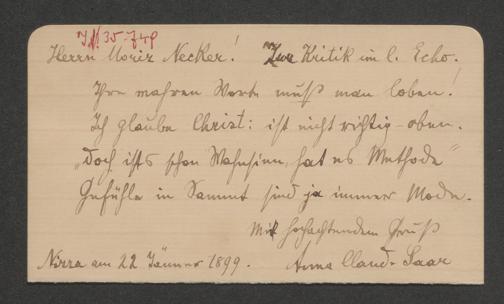 I.N. 35.749
Herrn Moriz Necker! Zur Kritik im l. Echo.
Ihre wahren Worte muß man loben!
Ich glaube Christ: ist nicht richtig - oben.
„Doch ists schon Wahnsinn, hat es Methode“
Gefühle in Sammt sind ja immer Mode.
Mit hochachtendem Gruß
Nizza am 22 Jänner 1899. Anna Claud-Saar